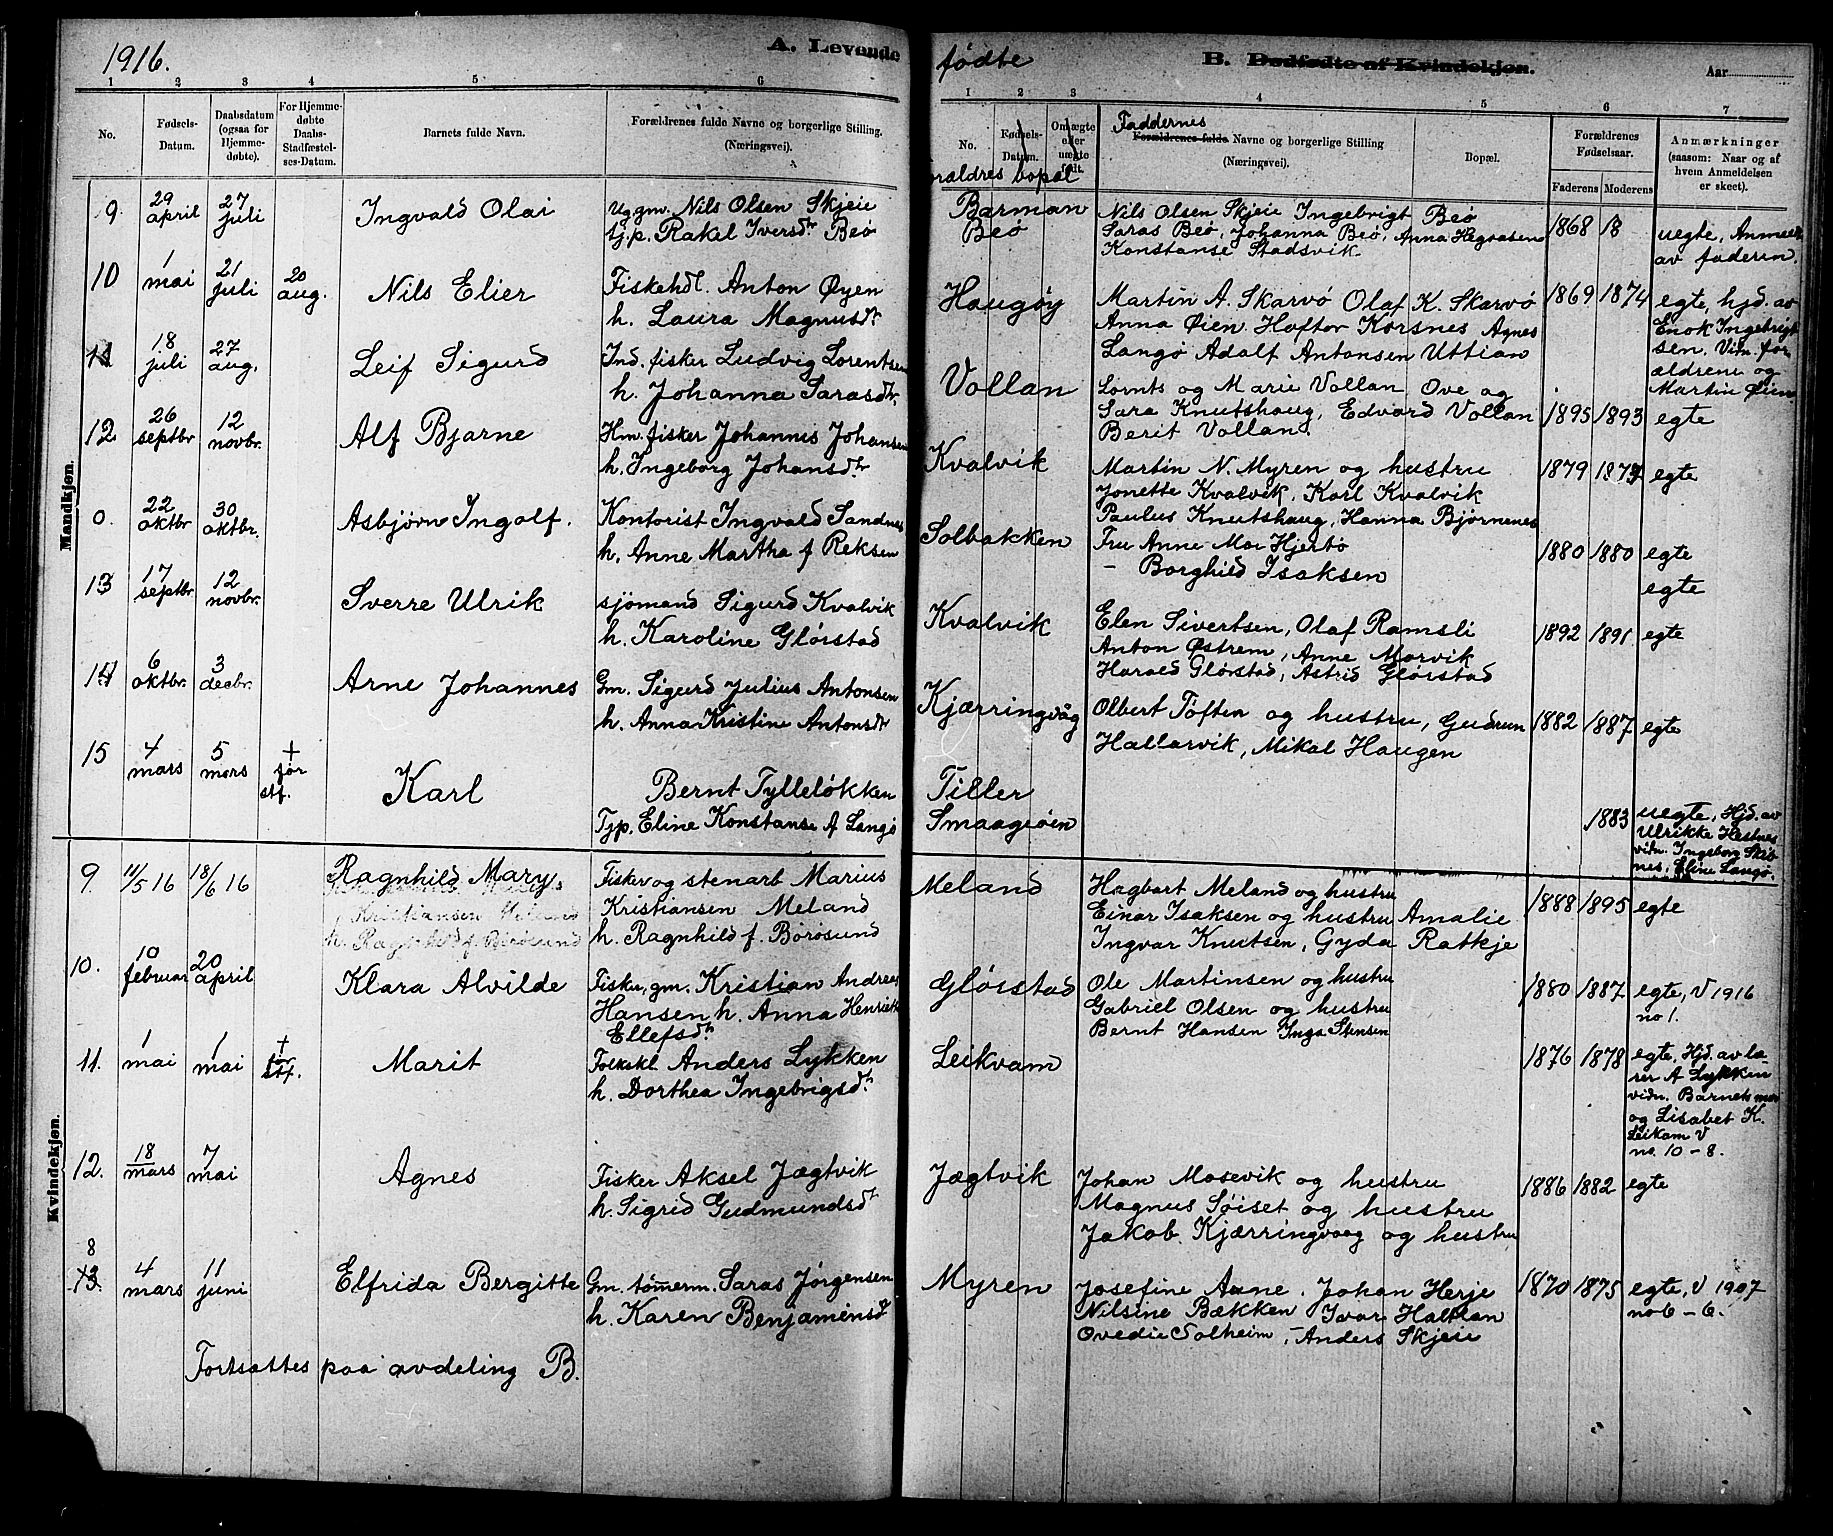 1916.
A. Levende
fødte
B. Dødfødte af Kvindekjøn.
Aar
1 2 3 4 5 6
1 2 3 4 5 6 7
No.
Fødsels-Datum.
Daabsdatum (ogsaa for Hjemme-døbte).
For Hjemme-døbte Daabs-Stadfæstel-ses-Datum.
Barnets fulde Navn.
Forældrenes fulde Navne og borgerlige Stilling. (Næringsvei).
No.
Fødsels-Datum.
Om ægte eller uægte født.
Forældrenes fulde Navne og borgerlige Stilling (Næringsvei).
Faddernes
Bopæl.
Forældrenes Fødselsaar.
Faderens Moderens
Anmærkninger (saasom: Naar og af hvem Anmeldelsen er skeet).
oraldres bopæl
Mandkjøn.
9 29 april 27 juli Ingvald Olai
Uggm. Nils Olsen Skjeie
tj.p. Rakel Iversdtr Beø
Barman
Beø
Nils Olsen Skjeie Ingebrigt Beø
Saras Beø, Johanna Beø, Anna Hegvasen
Konstanse Stadsvik
1868 18
uegte, Anmeldt
av faderen.
10 1 mai 21 juli 20 aug. Nils Elier
Fiskehdl. Anton Øyen
h. Laura Magnusdtr
Haugøy
Martin A. Skarvø Olaf K. Skarvø
Anna Øien Haftor Korsnes Agnes
Langø Adalf Antonsen Uttian
1869 1874
egte, hjd. av
Enok Ingebrigt
sen. Vidn. for
ældrene og
Martin Øien
11 18 juli 27 aug. Leif Sigurd
Ind. fisker Ludvig Lorentsen
h. Johanna Sarasdtr.
Vollan
Lornts og Marie Vollan Ove og
Sara Knutshaug, Edvard Vollan
Berit Vollan.
1895 1893 egte
12 26 septbr 12 novbr. Alf Bjarne
Hm. fisker Johannes Johansen
h. Ingeborg Johansdtr
Kvalvik
Martin N. Myren og hustru
Jonette Kvalvik, Karl Kvalvik
Paulus Knutshaug, Hanna Bjørnenes
1879 1874 egte
0. 22 oktbr 30 oktbr. Asbjørn Ingolf.
Kontorist Ingvald Sandnes
h. Anne Martha f Reksen
Solbakken
Fru Anne Moe Hjertø
— Borghild Isaksen
1880 1880 egte
egte
13 17 septbr 12 novbr. Sverre Ulrik
sjömand Sigurd Kvalvik
h. Karoline Glørstad
Kvalvik
Elen Sivertsen, Olaf Ramsli
Anton Østrem, Anne Morvik
Harald Glørstad, Astrid Glørstad
1892 1891 egte
14 6 oktbr. 3 decbr. Arne Johannes
Gm. Sigurd Julius Antonsen
h. Anna Kristine Antonsdtr
Kjærringvåg
Olbert Toften og hustru, Gudrun
Hallarvik, Mikal Haugen
1882 1887 egte
15 4 mars 5 mars † før stf. Karl
Bernt Tylleløkken
Tjp. Eline Konstanse A Langø
Tiller
Smaageøien
1883
uegte, Hjd. av
Ulrikke Hestnes
vidn. Ingeborg Skib
nes, Eline Langø.
Kvindekjøn.
9. 11/5 16 18/6 16 Ragnhild Mary
Kristiansen Meland
h. Ragnhild f. Børøsund
Fisker og stenarb Marius
Kristiansen Meland
h. Ragnhild f. Børøsund
Meland
Hagbart Meland og hustru
Einar Isaksen og hustru Amalie
Ingvar Knutsen, Gyda Ratkje
1888 1895 egte
10. 10 februar 20 april Klara Alvilde
Fisker, gm. Kristian Andreas
Hansen h. Anna Henriette
Ellefsdtr
Glørstad
Ole Martinsen og hustru
Gabriel Olsen og hustru
Bernt Hansen Inga Stensen
1880 1887 egte, V 1916
no 1.
11. 1 mai 1 mai † før stf. Marit
Folkekl Anders Lykken
h. Dorthea Ingebrigsdtr
Leikvam
1876 1878
egte, Hjd. av læ
rer A Lykken
vidn. Barnets mor
og Lisabet K.
Leikam V
no. 10 – 8.
12. 18 mars 7 mai Agnes
Fisker Aksel Jægtvik
h. Sigrid Gudmundsdtr
Jægtvik
Johan Mosevik og hustru
Magnus Søiset og hustru
Jakob Kjærringvaag og hustru
1886 1882 egte
8
13 4 mars 11 juni Elfrida Bergitte
Gm. tømerm. Saras Jørgensen
h. Karen Benjaminsdtr
Myren
Josefine Aune, Johan Herje
Nilsine Bækken Ivar Haltlan
Ovedie Solheim, Anders Skjeie
1870 1875 egte, V 1907
no 6 – 6.
Fortsættes paa avdeling B.